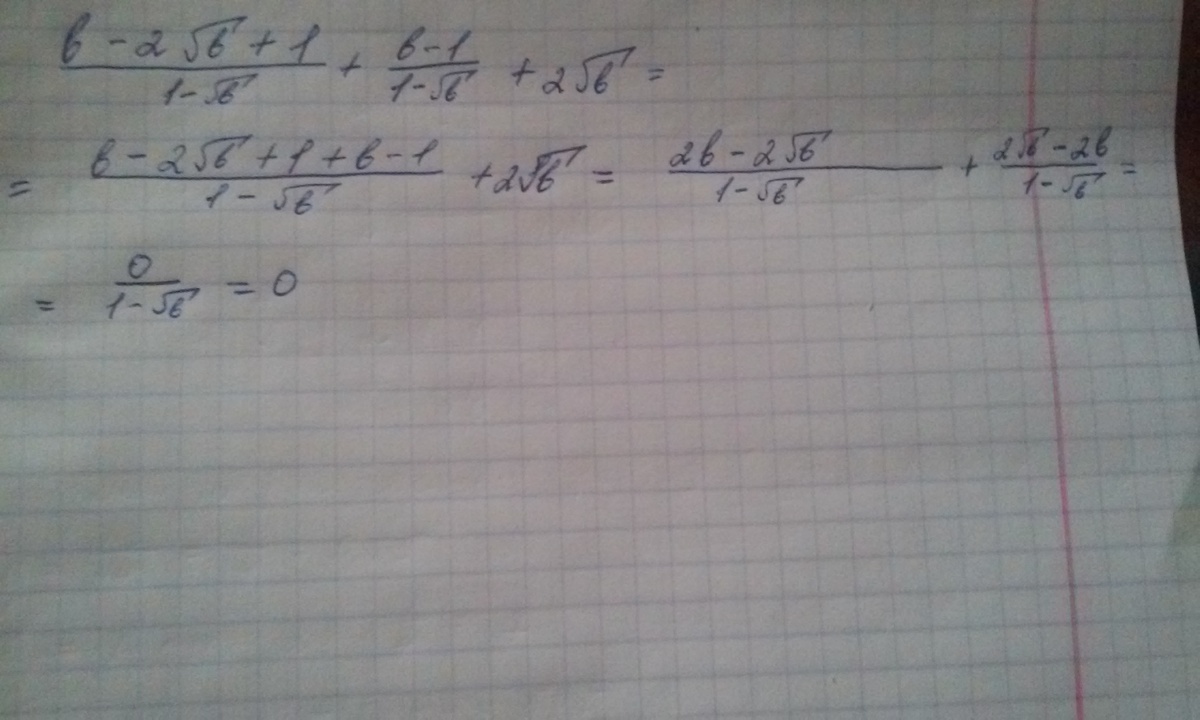 (b - 2√b + 1)/(1 - √b) + (b - 1)/(1 - √b) + 2√b =
= (b - 2√b + 1 + b - 1)/(1 - √b) + 2√b = (2b - 2√b)/(1 - √b) + (2√b - 2b)/(1 - √b) =
= 0/(1 - √b) = 0